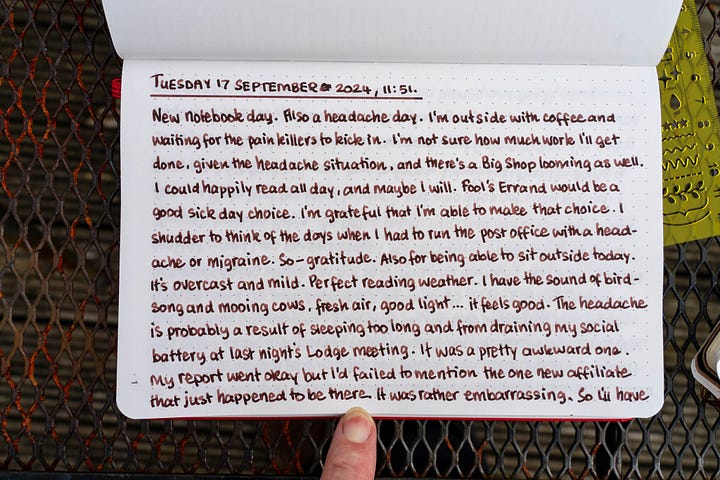 TUESDAY 17 SEPTEMBER 2024, 11:51.
New notebook day. Also a headache day. I'm outside with coffee and
waiting for the pain killers to kick in. I'm not sure how much work I'll get
done, given the headache situation, and there's a Big Shop looming as well.
I could happily read all day, and maybe I will. Fool's Errand would be a
good sick day choice. I'm grateful that I'm able to make that choice. I
shudder to think of the days when I had to run the post office with a head-
ache or migraine. So – gratitude. Also for being able to sit outside today.
It's overcast and mild. Perfect reading weather. I have the sound of bird-
song and mooing cows, fresh air, good light... it feels good. The headache
is probably a result of sleeping too long and from draining my social
battery at last night's Lodge meeting. It was a pretty awkward one.
My report went okay but I'd failed to mention the one new affiliate
that just happened to be there. It was rather embarrassing. So I'll have